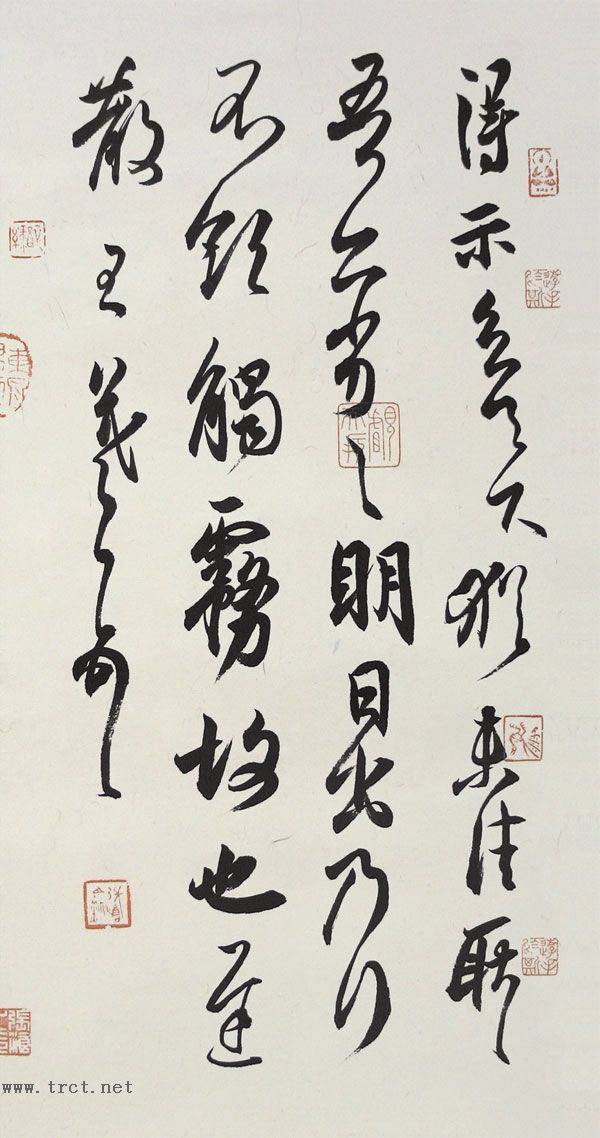 得示知足下猶未佳耿耿
吾亦劣劣明日出乃行
不欲觸霧故也遲
散 王羲之頓首
www.trct.net